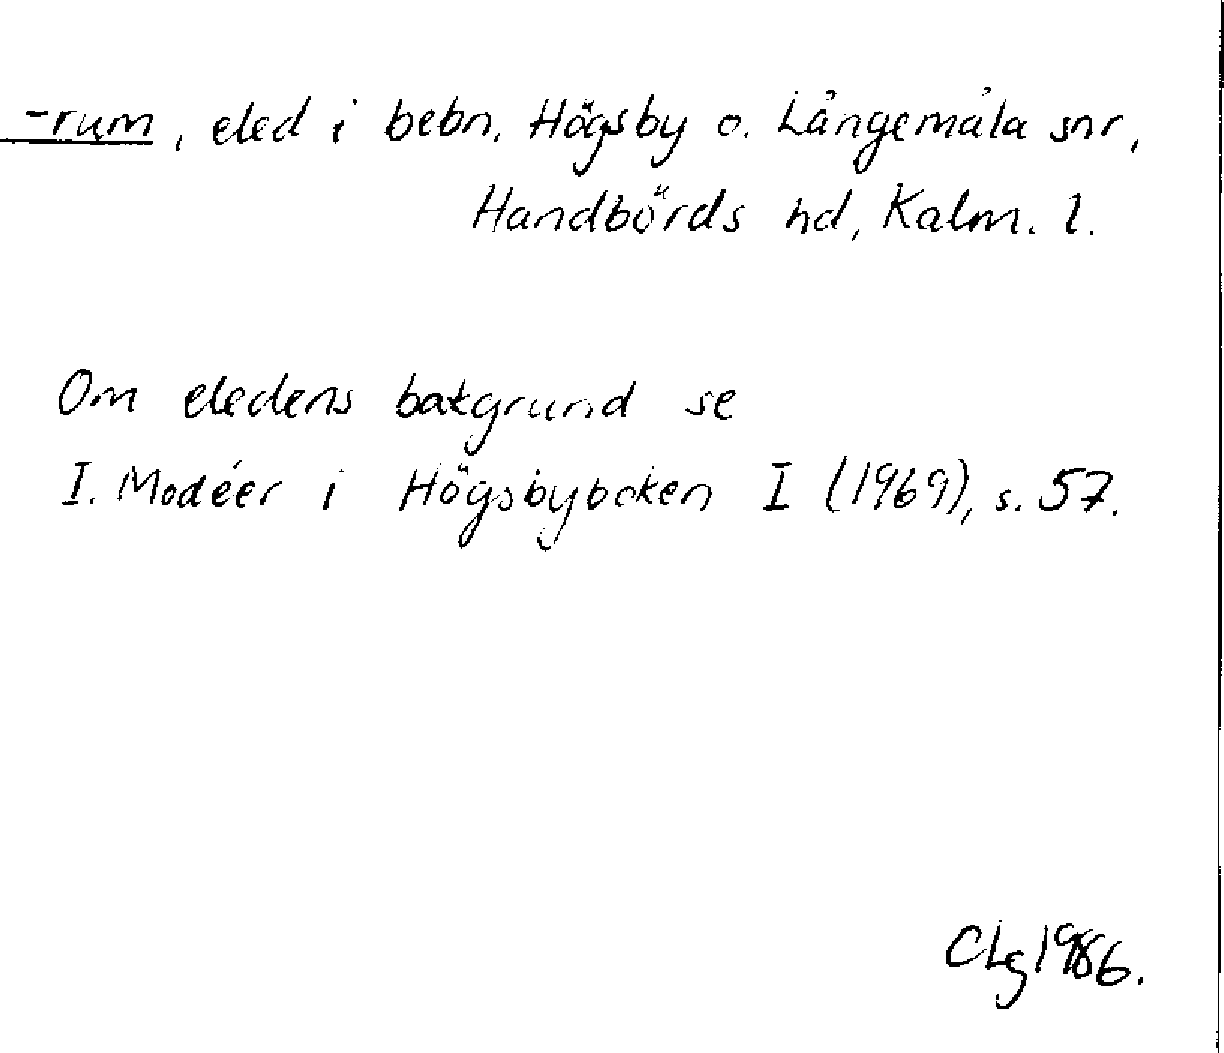 -rum, eled i bebn. Högsby o. Långemåla snr,
Handbörds hd, Kalm. l.
Om eledens bakgrund se
I. Modéer i Högsbyboken I (1969), s. 57.
CLg 1986.